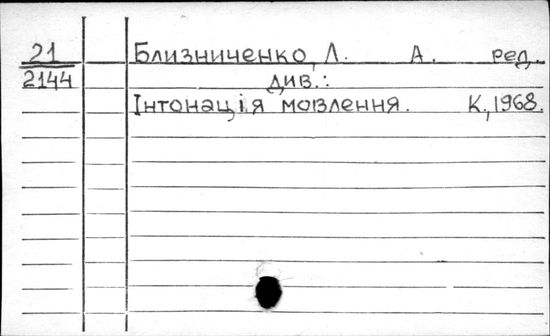 21 Близниченко, Л. А. ред.
2144 див.:
Інтонація мовлення. К., 1968.